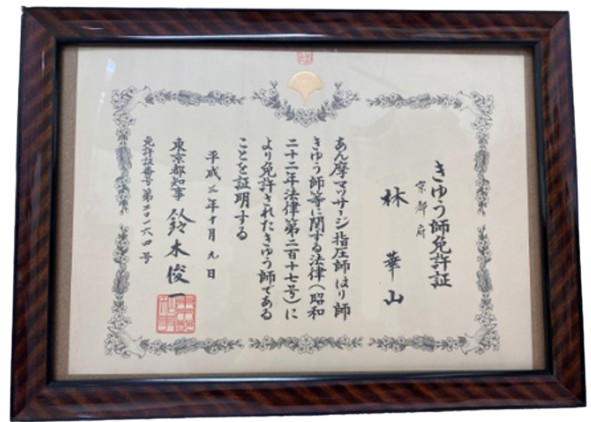 きゆう師免許証
京都府
林華山
あん摩マツサージ指圧師はり師
きゆう師等に関する法律(昭和
二十二年法律第二百十七号)に
より免許されたきゆう師である
ことを証明する
平成三年十月九日
東京都知事 鈴木俊一
免許証番号第三二一六四号